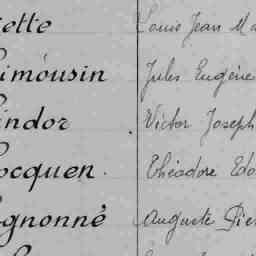 ette Louis Jean Ma
imousin Jules Eugène
indor Victor Joseph
ocquen Théodore Edo
gnonné Auguste Pier